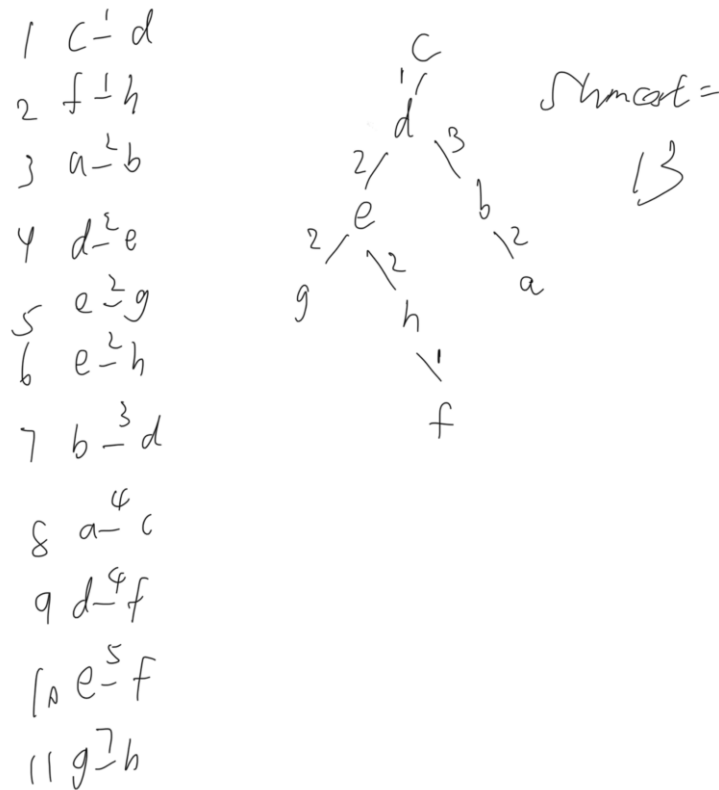 1 c-1d
2 f-1h
3 a-2b
4 d-2e
5 e-2g
6 e-2h
7 b-3d
8 a-4c
9 d-4f
10 e-5f
11 g-7h
c
1
d
2 3
e b
2 2 2
g h a
1
f
=
13